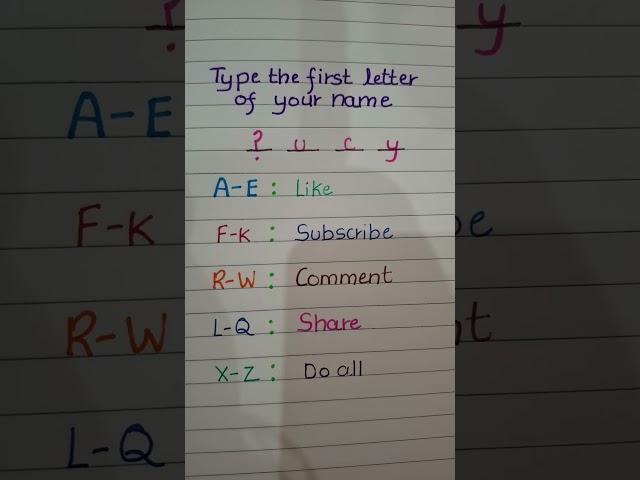 Type the first letter
of your name
? u c y
A-E : Like
F-K : Subscribe
R-W : Comment
L-Q : Share
X-Z : Do all